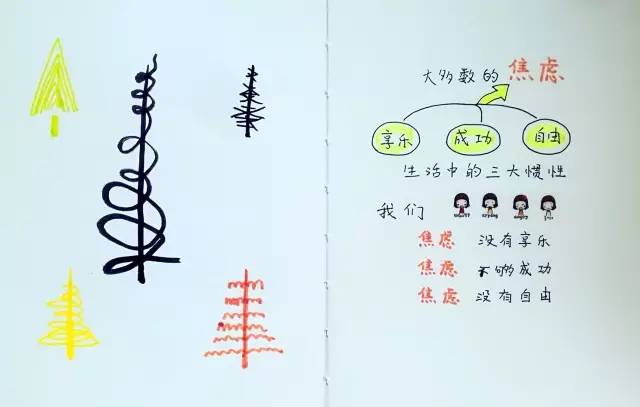 大多数的焦虑
享乐 成功 自由
生活中的三大惯性
我们
焦虑 没有享乐
焦虑 不够成功
焦虑 没有自由